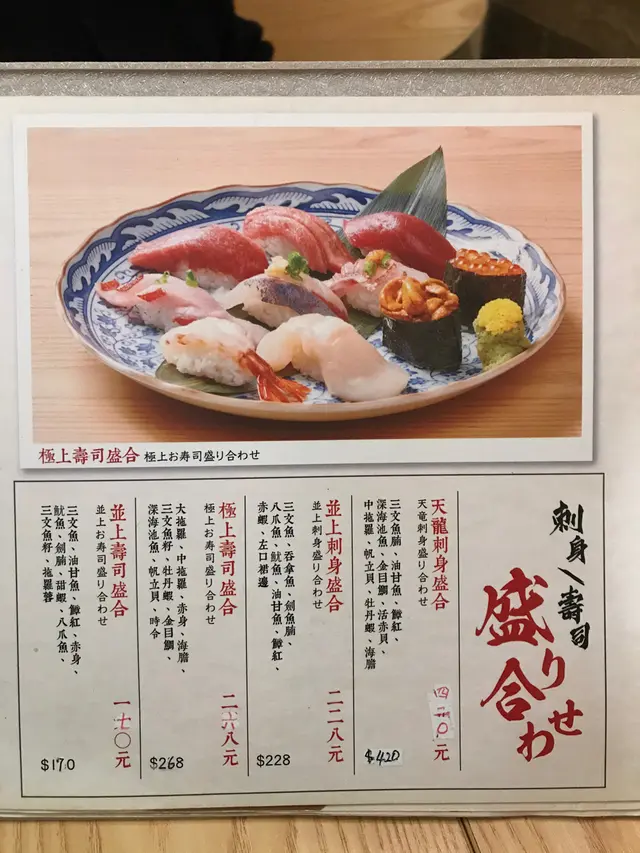 極上壽司盛合 極上お寿司盛り合わせ
刺身/壽司
盛り合わせ
天龍刺身盛合
天竜刺身盛り合わせ
三文魚腩、油甘魚、鰤紅、
深海池魚、金目鯛、活赤貝、
中拖羅、帆立貝、牡丹蝦、海膽
四二〇元
$420
並上刺身盛合
並上刺身盛り合わせ
三文魚、吞拿魚、劍魚腩、
八爪魚、魷魚、油甘魚、鰤紅、
赤蝦、左口裙邊
二二八元
$228
極上壽司盛合
極上お寿司盛り合わせ
大拖羅、中拖羅、赤身、海膽、
三文魚籽、牡丹蝦、金目鯛、
深海池魚、帆立貝、時令
二六八元
$268
並上壽司盛合
並上お寿司盛り合わせ
三文魚、油甘魚、鰤紅、赤身、
魷魚、劍腩、甜蝦、八爪魚、
三文魚籽、拖羅蓉
一七〇元
$170